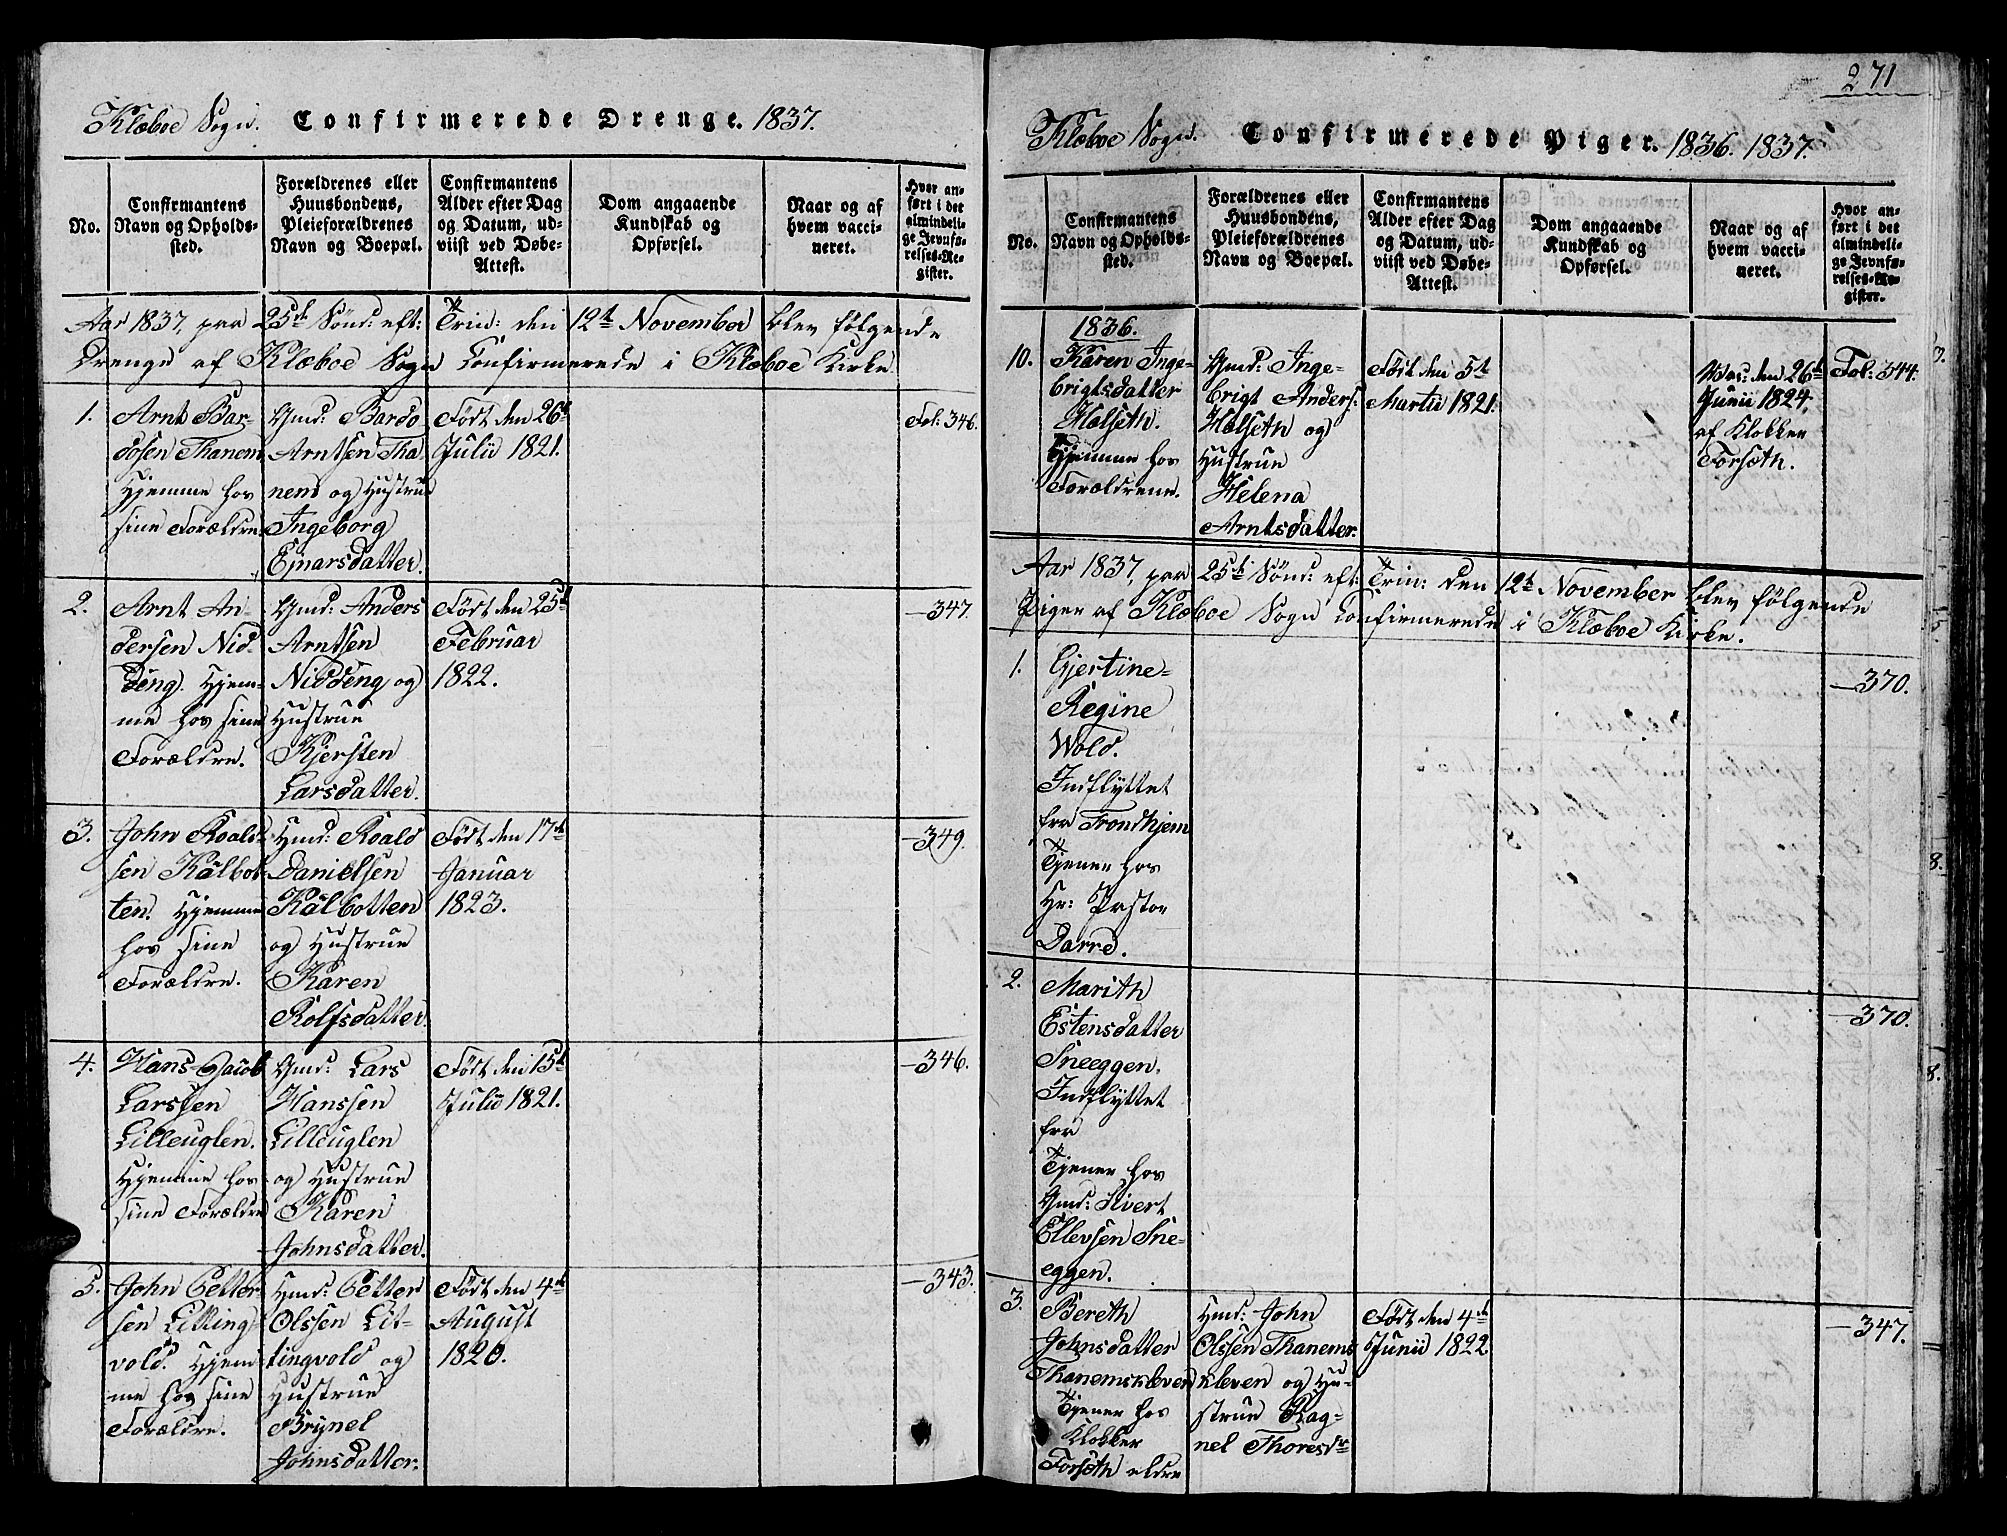 Klæboe Sogn. Confirmerede Drenge. 1837.
No.
Confirmantens
Navn og Opholds-
sted.
Forældrenes eller
Huusbondens,
Pleieforældrenes
Navn og Boepæl.
Confirmantens
Alder efter Dag
og Datum, ud-
viist ved Døbe-
Attest.
Dom angaaende
Kundskab og
Opførsel.
Naar og af
hvem vacci-
neret.
Hvor an-
ført i det
almindeli-
ge Jevnfø-
relses-Re-
gister.
Aar 1837, paa 25de Sönd: eft: Trin: den 12te November blev følgende
Drenge af Klæboe Sogn Confirmerede i Klæboe Kirke.
1.
Arnt Bar-
dosen Thanem
Hjemme hos
sine Forældre.
Gmd: Bardo
Arntsen Tha
nem og Hustrue
Ingeborg
Ejnarsdatter.
Født den 26de
Julii 1821.
Fol: 346.
2.
Arnt An-
dersen Nid-
deng. Hjem-
me hos sine
Forældre.
Gmd: Anders
Arntsen
Niddeng og
Hustrue
Kjersten
Larsdatter.
Født den 25de
Februar
1822.
—347.
3.
John Roald-
sen Kålbot-
ten. Hjemme
hos sine
Forældre.
Hmd: Roald
Danielsen
Kålbotten
og Hustrue
Karen
Rolfsdatter.
Født den 17de
Januar
1823.
—349.
4.
Hans-Jacob
Larssen
Lilleuglen.
Hjemme hos
sine Forældre
Gmd: Lars
Hanssen
Lilleuglen
og Hustrue
Karen
Johnsdatter.
Født den 15de
Julii 1821.
—346.
5.
John Petter-
sen Litting-
vold. Hjem-
me hos sine
Forældre.
Hmd: Petter
Olssen Lit-
tingvold og
Hustrue
Brynel
Johnsdatter.
Født den 4de
August
1820.
—343.
271
Klæboe Sogn. Confirmerede Piger. 1836. 1837.
No.
Confirmantens
Navn og Opholds-
sted.
Forældrenes eller
Huusbondens,
Pleieforældrenes
Navn og Boepæl.
Confirmantens
Alder efter Dag
og Datum, ud-
viist ved Døbe-
Attest.
Dom angaaende
Kundskab og
Opførsel.
Naar og af
hvem vacci-
neret.
Hvor an-
ført i det
almindeli-
ge Jevnfø-
relses-Re-
gister.
1836.
10.
Karen Inge-
brigtsdatter
Halseth.
Hjemme hos
Forældrene.
Gmd: Inge-
brigt Anders:
Halseth og
Hustrue
Helena
Arntsdatter.
Født den 5te
Martii 1821.
Vac: den 26de
Junii 1824,
af Klokker
Forseth.
Fol: 344.
Aar 1837, paa 25de Sönd: eft: Trin: den 12te November blev følgende
Piger af Klæboe Sogn Confirmerede i Klæboe Kirke.
1.
Gjertine-
Regine
Wold.
Indflyttet
fra Trondhjem
Tjener hos
Hr: Pastor
Darre.
—370.
2.
Marith
Estensdatter
Sneeggen.
Indflyttet
fra
Tjener hos
Gmd: Sivert
Ellevsen Sne-
eggen.
—370.
3.
Bereth
Johnsdatter
Thanemskleven
Tjener hos
Klokker
Forseth eldre
Hmd: John
Olssen Thanems
kleven og Hu-
strue Rag-
nel Thoresdr
Født den 4de
Junii 1822.
—347.